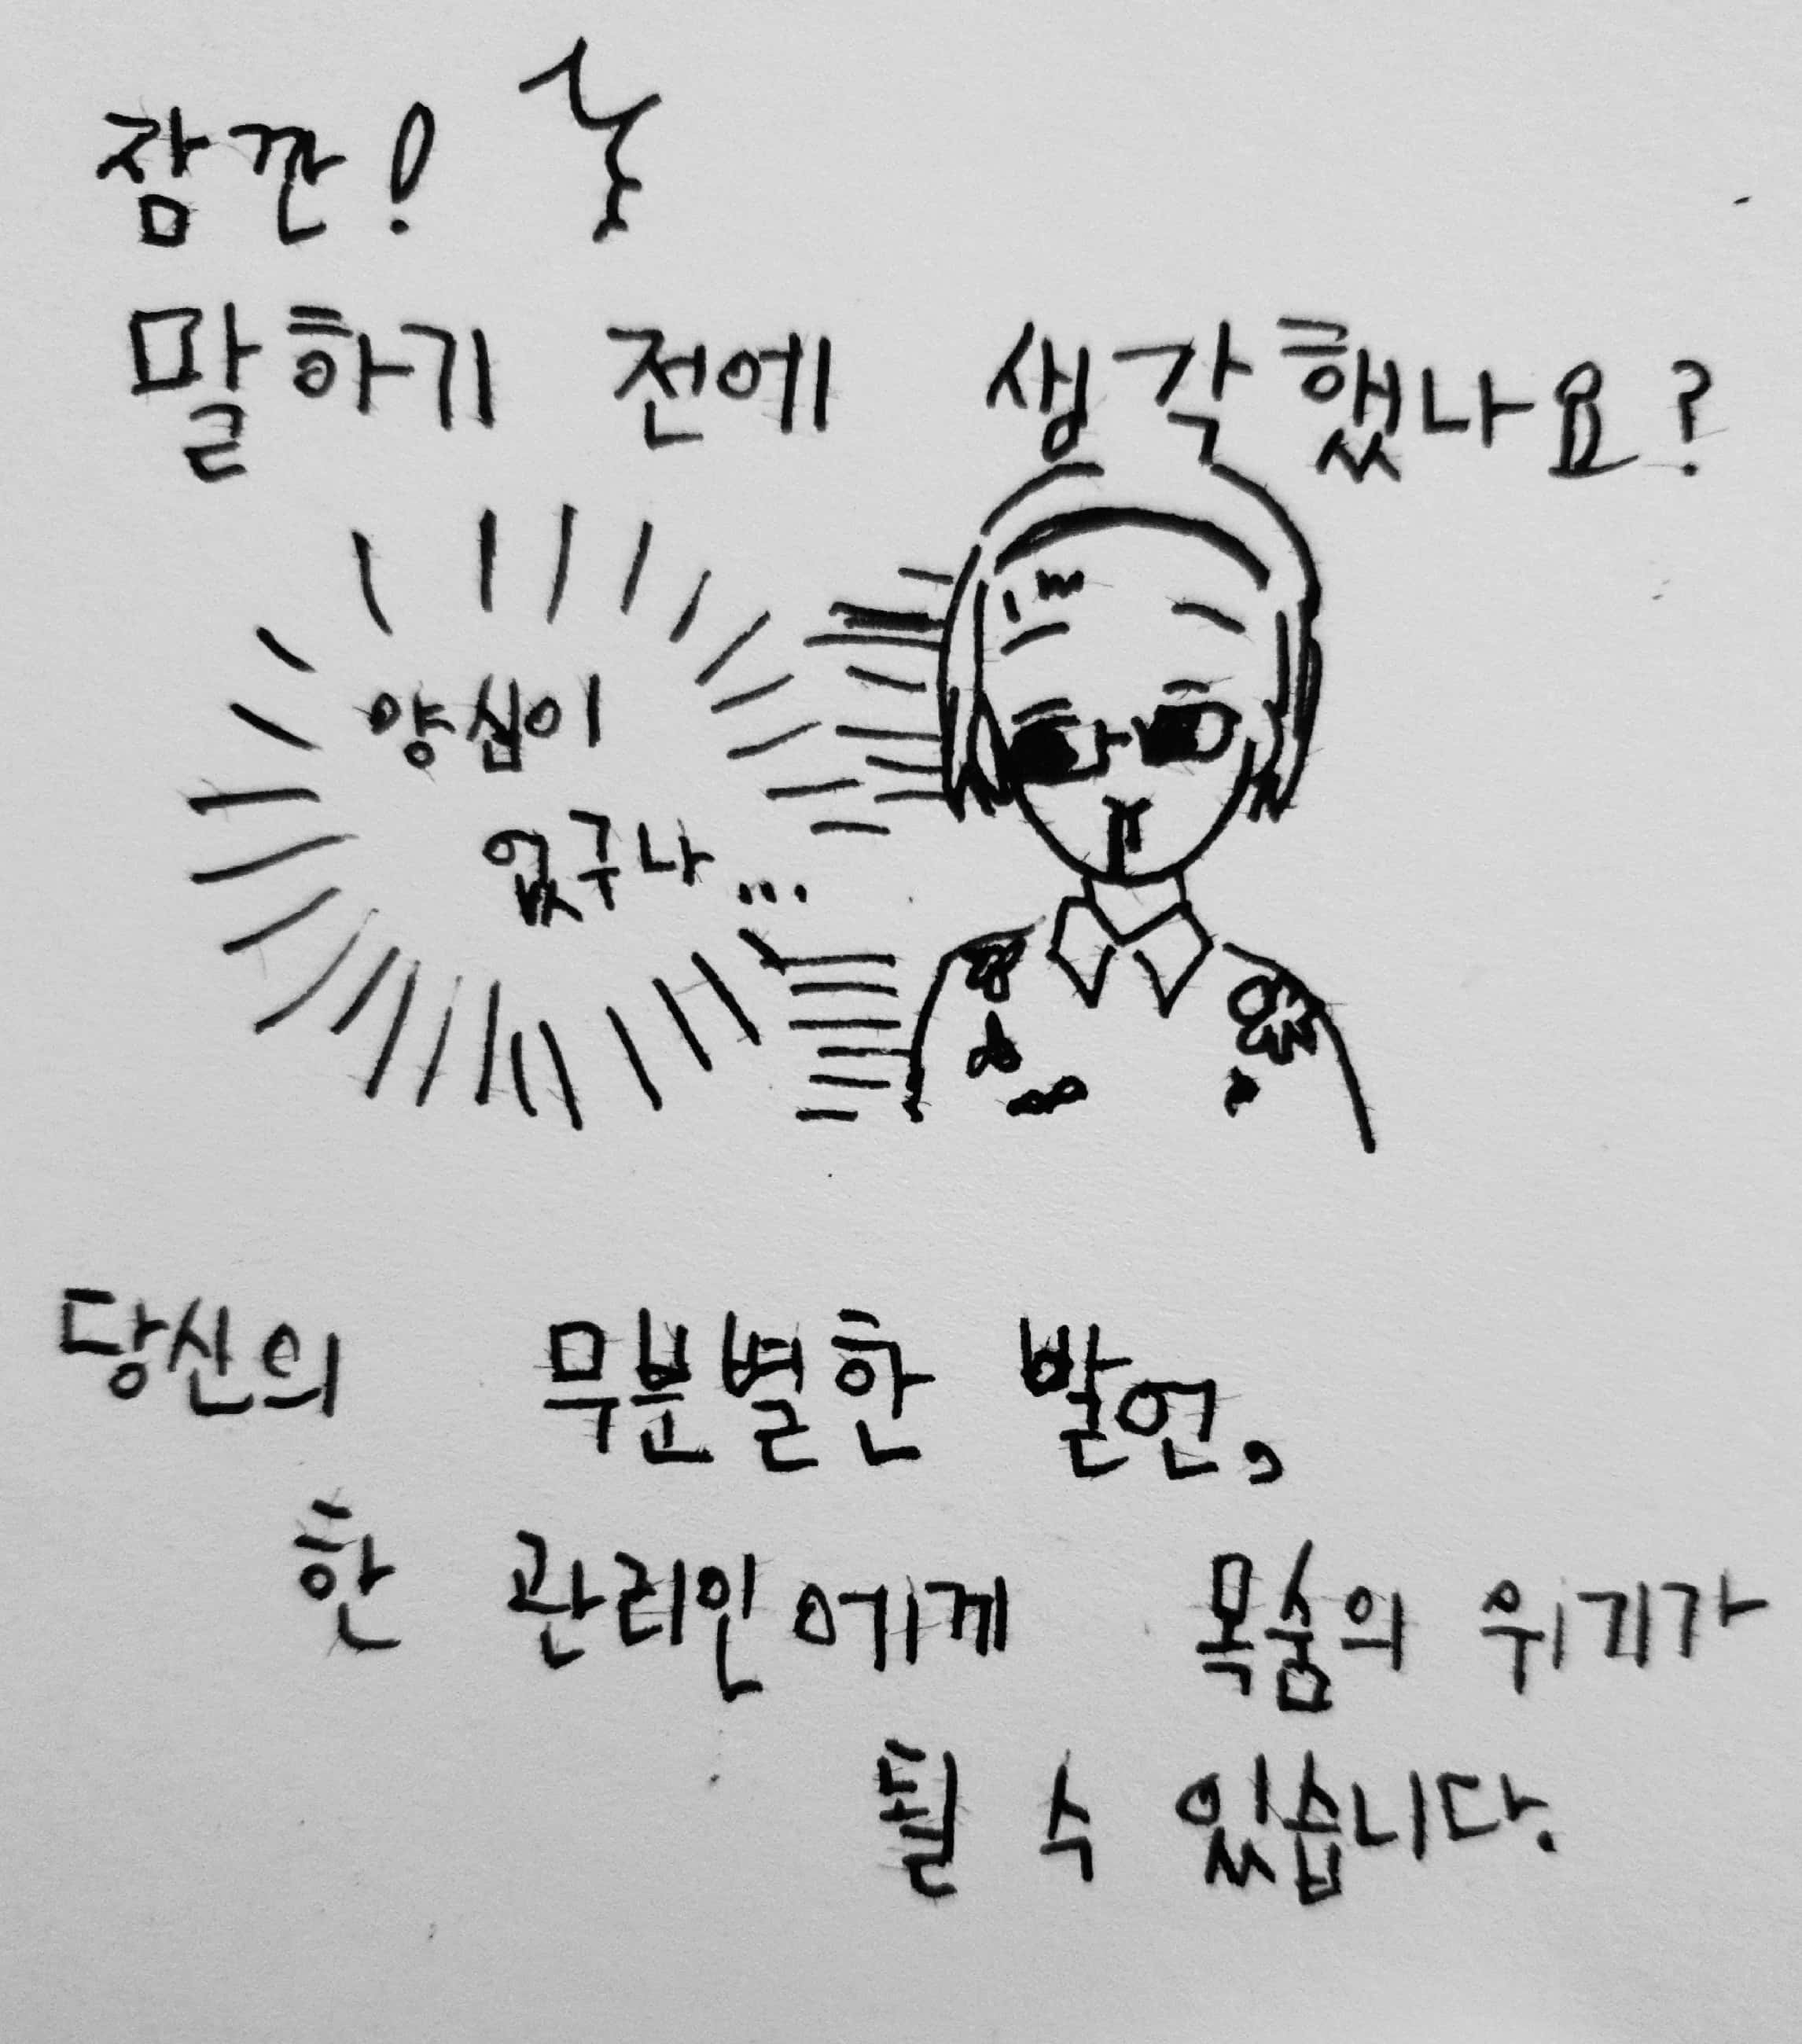 잠깐!
말하기 전에 생각했나요?
양심이
없구나...
당신의 무분별한 발언,
한 관리인에게 목숨의 위기가
될 수 있습니다.